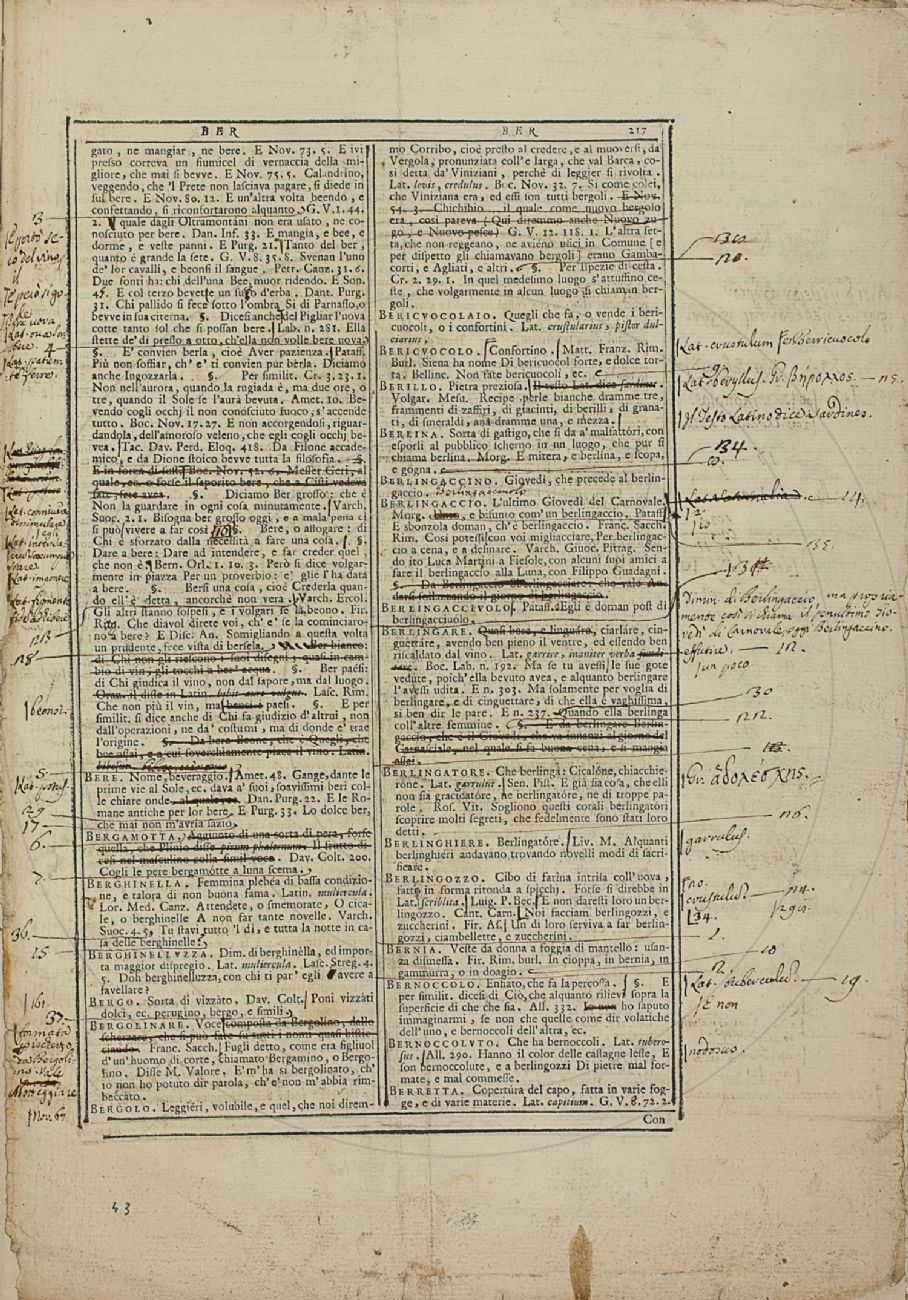 BER
BER 217
gato, ne mangiar, ne bere. E Nov. 73. 5. E ivi
presso correva un fiumicel di vernaccia della mi-
gliore, che mai si bevve. E Nov. 75. 5. Calandrino,
veggendo, che 'l Prete non lasciava pagare, si diede in
sul bere. E Nov. 80. 12. E un'altra volta beendo, e
confettando, si riconfortarono alquanto. G. V. 1. 44.
2. quale dagli Oltramontani non era usato, ne co-
nosciuto per bere. Dan. Inf. 33. E mangia, e bee, e
dorme, e veste panni. E Purg. 21. Tanto del ber,
quanto è grande la sete. G. V. 8. 35. 8. Svenan l'uno
de' lor cavalli, e beonsi il sangue. Petr. Canz. 31. 6.
Due fonti ha: chi dell'una Bee, muor ridendo. E Son.
45. E col terzo bevette un sugo d'erba. Dant. Purg.
31. Chi pallido si fece sotto l'ombra Sì di Parnaso, o
bevve in sua citerna. §. Dicesi anche del Pigliar l'uova
cotte tanto sol che si possan bere. Lab. n. 281. Ella
stette de' dì presso a otto, ch'ella non volle bere uova.
§. E' convien berla, cioè Aver pazienza. Pataff.
Più non soffiar, ch' e' ti convien pur bérla. Diciamo
anche Ingozzarla. §. Per similit. Cr. 3. 23. 1.
Non nell'aurora, quando la rugiada è, ma due ore, o
tre, quando il Sole se l'aurà bevuta. Amet. 10. Be-
vendo cogli occhj il non conosciuto fuoco, s'accende
tutto. Boc. Nov. 17. 27. E non accorgendosi, riguar-
dandola, dell'amoroso veleno, che egli cogli occhj be-
vea. Tac. Dav. Perd. Eloq. 418. Da Filone accade-
mico, e da Dione stoico bevve tutta la filosofia. §.
E in forza di sust. Boc. Nov. 52. 6. Messer Geri, al
quale, ec. o forse il saporito bere, che a Cisti vedeva
fare, sete avea. §. Diciamo Ber grosso: che è
Non la guardare in ogni cosa minutamente. Varch.
Suoc. 2. 1. Bisogna ber grosso oggi, e a mala pena ci
si può vivere a far così §. Bere, o affogare: di
Chi è sforzato dalla necessità a fare una cosa. §.
Dare a bere: Dare ad intendere, e far creder quel,
che non è. Bern. Orl. 1. 10. 3. Però si dice volgar-
mente in piazza Per un proverbio: e' gliè l'ha data
a bere. §. Bersi una cosa, cioè Crederla quan-
do ell'è detta, ancorchè non vera. Varch. Ercol.
Gli altri stanno sospesi, e i volgari se la beono. Fir.
Rag. Che diavol direte voi, ch' e' se la cominciaro-
no a bere? E Disc. An. Somigliando a questa volta
un prudente, fece vista di bersela. Ber bianco:
di Chi non gli riescono i suoi disegni, quasi in cam-
bio di vin, gli tocchi a ber' acqua. §. Ber paési:
di Chi giudica il vino, non dal sapore, ma dal luogo.
Lasc. Rim.
Che non più il vin, ma paesi. §. E per
similit. si dice anche di Chi fa giudizio d'altrui, non
dall'operazioni, ne da' costumi, ma di donde e' trae
l'origine. §. Da bere Beone, che è Quegli, che
bee assai, e a cui soverchiamente piace il vino. Latin.
BERE. Nome, beveraggio. Amet. 48. Gange, dante le
prime vie al Sole, ec. dava a' suoi, soavissimi beri col-
le chiare onde. Dan. Purg. 22. E le Ro-
mane antiche per lor bere. E Purg. 33. Lo dolce ber,
che mai non m'avria sazio.
BERGAMOTTA. Aggiunto di una sorta di pera, forse
quella, che Plinio disse pirum phalernum. Il frutto di-
cesi nel masculino colla simil voce. Dav. Colt. 200.
Cogli le pere bergamòtte a luna scema.
BERGHINELLA. Femmina plebéa di bassa condizio-
ne, e talora di non buona fama. Latin. muliercula.
Lor. Med. Canz. Attendete, o smemorate, O cica-
le, o berghinelle A non far tante novelle. Varch.
Suoc. 4. 5. Tu stavi tutto 'l dì, e tutta la notte in ca-
sa delle berghinelle.
BERGHINELLUZZA. Dim. di berghinélla, ed impor-
ta maggior dispregio. Lat. muliercula. Lasc. Streg. 4.
5. Dosi berghinelluzza, con chi ti par' egli avere a
favellare?
BERGO. Sorta di vizzàto. Dav. Colt. Poni vizzàti
dolci, ec. perugino, bergo, e simili.
BERGOLINARE. Voce composta da Bergolino, dallo
scherzare, che si può fare su tutti i nomi, quasi bistic-
ciando. Franc. Sacch. Fugli detto, come era figliuol
d'un'huomo di corte, chiamato Bergamino, o Bergo-
lino. Disse M. Valore, E m'ha sì bergolinato, ch'
io non ho potuto dir parola, ch'e' non m'abbia rim-
beccato.
BERGOLO. Leggiéri, volubile, e quel, che noi direm-
mo Corribo, cioè presto al credere, e al muoversi, da
Vergola, pronunziata coll'e larga, che val Barca, co-
sì detta da' Viniziani, perchè di leggier si rivolta.
Lat. levis, credulus. Boc. Nov. 32. 7. Sì come colei,
che Viniziana era, ed essi son tutti bergoli. E Nov.
54. 3. Chichibio, il quale come nuovo bergolo
era, così pareva (Qui diremmo anche Nuovo zu-
go, e Nuovo pesce) G. V. 12. 118. 1. L'altra set-
ta, che non reggeano, ne aviéno ufici in Comune [e
per dispetto gli chiamavano bergoli] erano Gamba-
corti, e Agliati, e altri. §. Per ispezie di cesta.
Cr. 2. 29. 1. In quel medesimo luogo s'attuffino ce-
ste, che volgarmente in alcun luogo si chiaman ber-
goli.
BERICUOCOLAIO. Quegli che fa, o vende i beri-
cuocoli, o i confortini. Lat. crustularius, pistor dul-
ciarius.
BERICUOCOLO. Confortino. Matt. Franz. Rim.
Burl. Siena ha nome Di bericuocol forte, e dolce tor-
ta. Bellinc. Non fate bericuocoli, ec.
BERILLO. Pietra preziosa. Il testo Lat. dice sardinus.
Volgar. Mesu. Recipe pèrle bianche dramme tre,
frammenti di zaffiri, di giacinti, di berilli, di grana-
ti, di smeraldi, anà dramme una, e mezza.
BERLINA. Sorta di gastigo, che si da a' malfattóri, con
esporli al pubblico scherno in un luogo, che pur si
chiama berlina. Morg. E mitera, e berlina, e scopa,
e gogna.
BERLINGACCINO. Giovedì, che precede al berlin-
gaccio. Berlingacciuolo
BERLINGACCIO. L'ultimo Giovedì del Carnovale.
Morg. Unto, e bisunto com'un berlingaccio. Pataff.
E sbonzola doman, ch'è berlingaccio. Franc. Sacch.
Rim. Così potess'i con voi migliacciare, Per berlingac-
cio a cena, e a desinare. Varch. Giuoc. Pittag. Sen-
do ito Luca Martini a Fiesole, con alcuni suoi amici a
fare il berlingaccio alla Luna, con Filippo Guadagni.
§. Da Berlingaccio Berlingacciare: che vale An-
darsi sollazzando il giorno di berlingaccio.
BERLINGACCIUOLO. Pataff. Egli è doman post dì
berlingacciuolo.
BERLINGARE. Quasi bere, e linguáre, ciarláre, cin-
guettáre, avendo ben pieno il ventre, ed essendo ben
riscaldato dal vino. Lat. garrire, inaniter verba fundi-
tare. Boc. Lab. n. 192. Ma se tu avessi le sue gote
vedute, poich'ella bevuto avea, e alquanto berlingare
l'avessi udita. E n. 303. Ma solamente per voglia di
berlingare, e di cinguettare, di che ella è vaghissima,
si ben dir le pare. E n. 237. Quando ella berlinga
coll'altre femmine. §. Da berlingare Berlin-
gaccio, che è il Giovedì, che va innanzi al giorno del
Carnasciale, nel quale si fa buona cena, e si mangia
assai.
BERLINGATORE. Che berlinga: Cicalóne, chiacchie-
róne. Lat. garrulus. Sen. Pist. E già sia cosa, che elli
non sia gracidatóre, ne berlingatóre, ne di troppe pa-
role. Ros. Vit. Sogliono questi cotali berlingatóri
scoprire molti segreti, che fedelmente sono stati loro
detti.
BERLINGHIERE. Berlingatóre. Liv. M. Alquanti
berlinghiéri andavano trovando novelli modi di sacri-
ficare.
BERLINGOZZO. Cibo di farina intrisa coll'uova,
fatto in forma ritonda a spicchj. Forse si direbbe in
Lat. scriblita. Luig. P. Bec. E non daresti loro un ber-
lingozzo. Cant. Carn. Noi facciam berlingozzi, e
zuccherini. Fir. As. Un di loro serviva a far berlin-
gozzi, ciambellette, e zuccherini.
BERNIA. Vesta da donna a foggia di mantello: usan-
za dismessa. Fir. Rim. burl. In cioppa, in bernia, in
gammurra, o in doagio.
BERNOCCOLO. Enfiato, che fa la percossa. §. E
per similit. dicesi di Ciò, che alquanto rilievi sopra la
superficie di che che sia. All. 332. Io non ho saputo
immaginarmi, se non che quelle come dir volatiche
dell'uno, e bernoccoli dell'altra, ec.
BERNOCCOLUTO. Che ha bernoccoli. Lat. tubero-
sus. All. 290. Hanno il color delle castagne lesse, E
son bernoccolute, e a berlingozzi Di pietre mal for-
mate, e mal commesse.
BERRETTA. Copertúra del capo, fatta in varie fog-
ge, e di varie materie. Lat. capitium. G. V. 8. 72. 2.
Con
13
4
ns
ns
beonci.
5
Lat. potus.
29
17
6.
7.
36.
15
161.
37.
formata
Motteggiare
Nov. 67.
130
no.
Lat. crustulum
Lat. beryllus. Gr. βήρυλλος. ns.
Il Testo Latino dice Sardines.
134.
co.
14.
12
135.
136
Dimin. di Berlingaccio, ma pro
mente così si chiama il penultimo Gio-
vedì di Carnovale, oggi Berlingaccino.
effutire. 12.
un poco
30
212.
Gr. ἀδολέσχης.
n6.
garrulus.
no.
crustulus. n4.
34. 294.
1.
10
2
Lat. tuberculus. 19.
E non
nodosus.
43